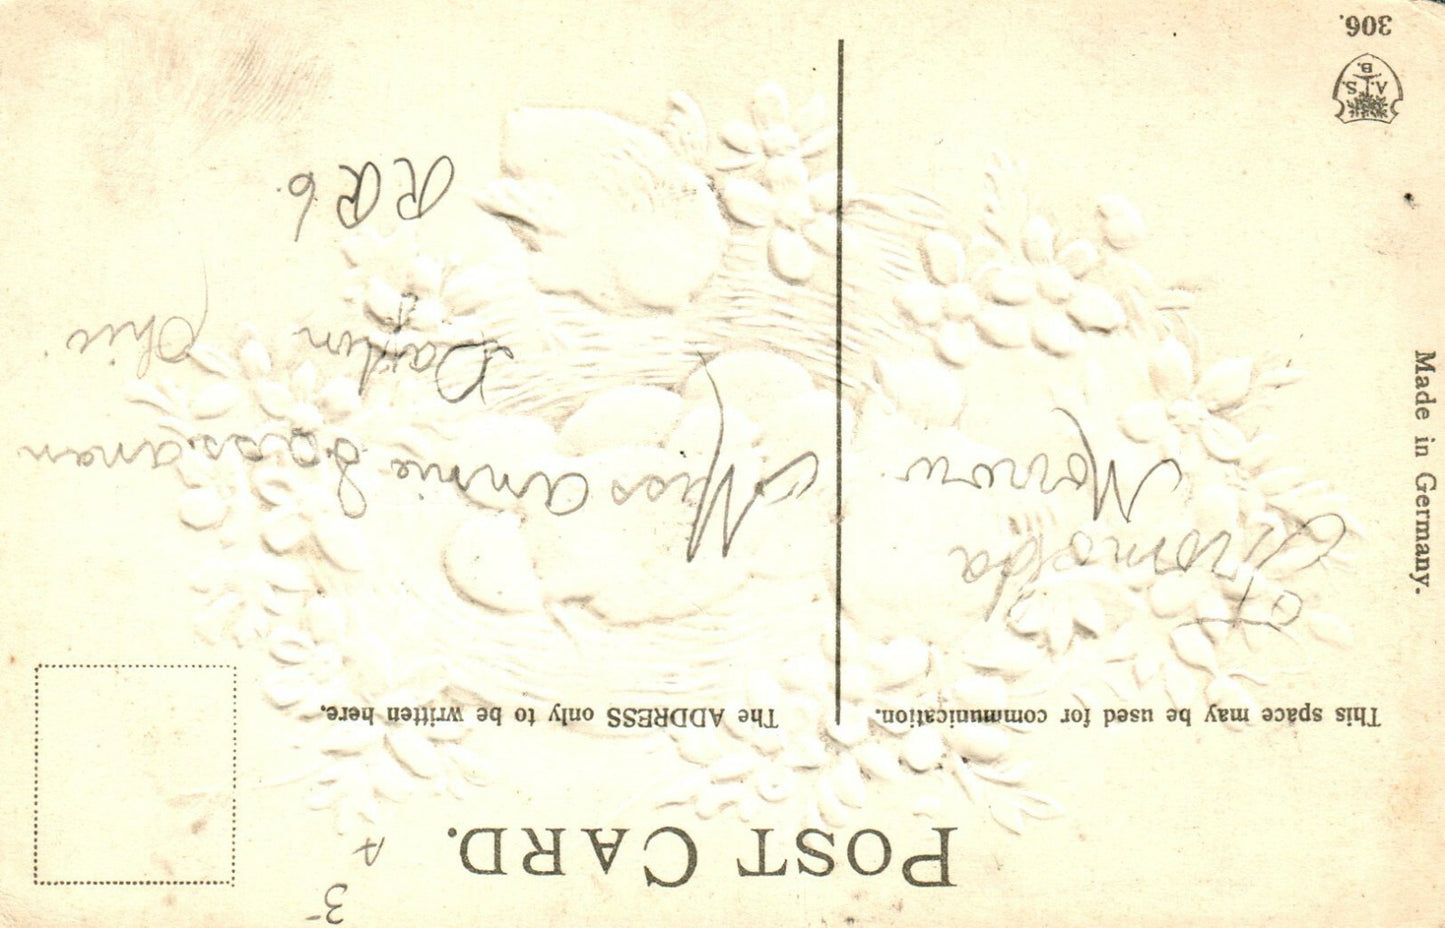 POST CARD.
This space may be used for communication.
The ADDRESS only to be written here.
From
Morrow
Miss Annie
Dayton Ohio
R R 6.
Made in Germany.
A. S.
B.
306.
3-
A